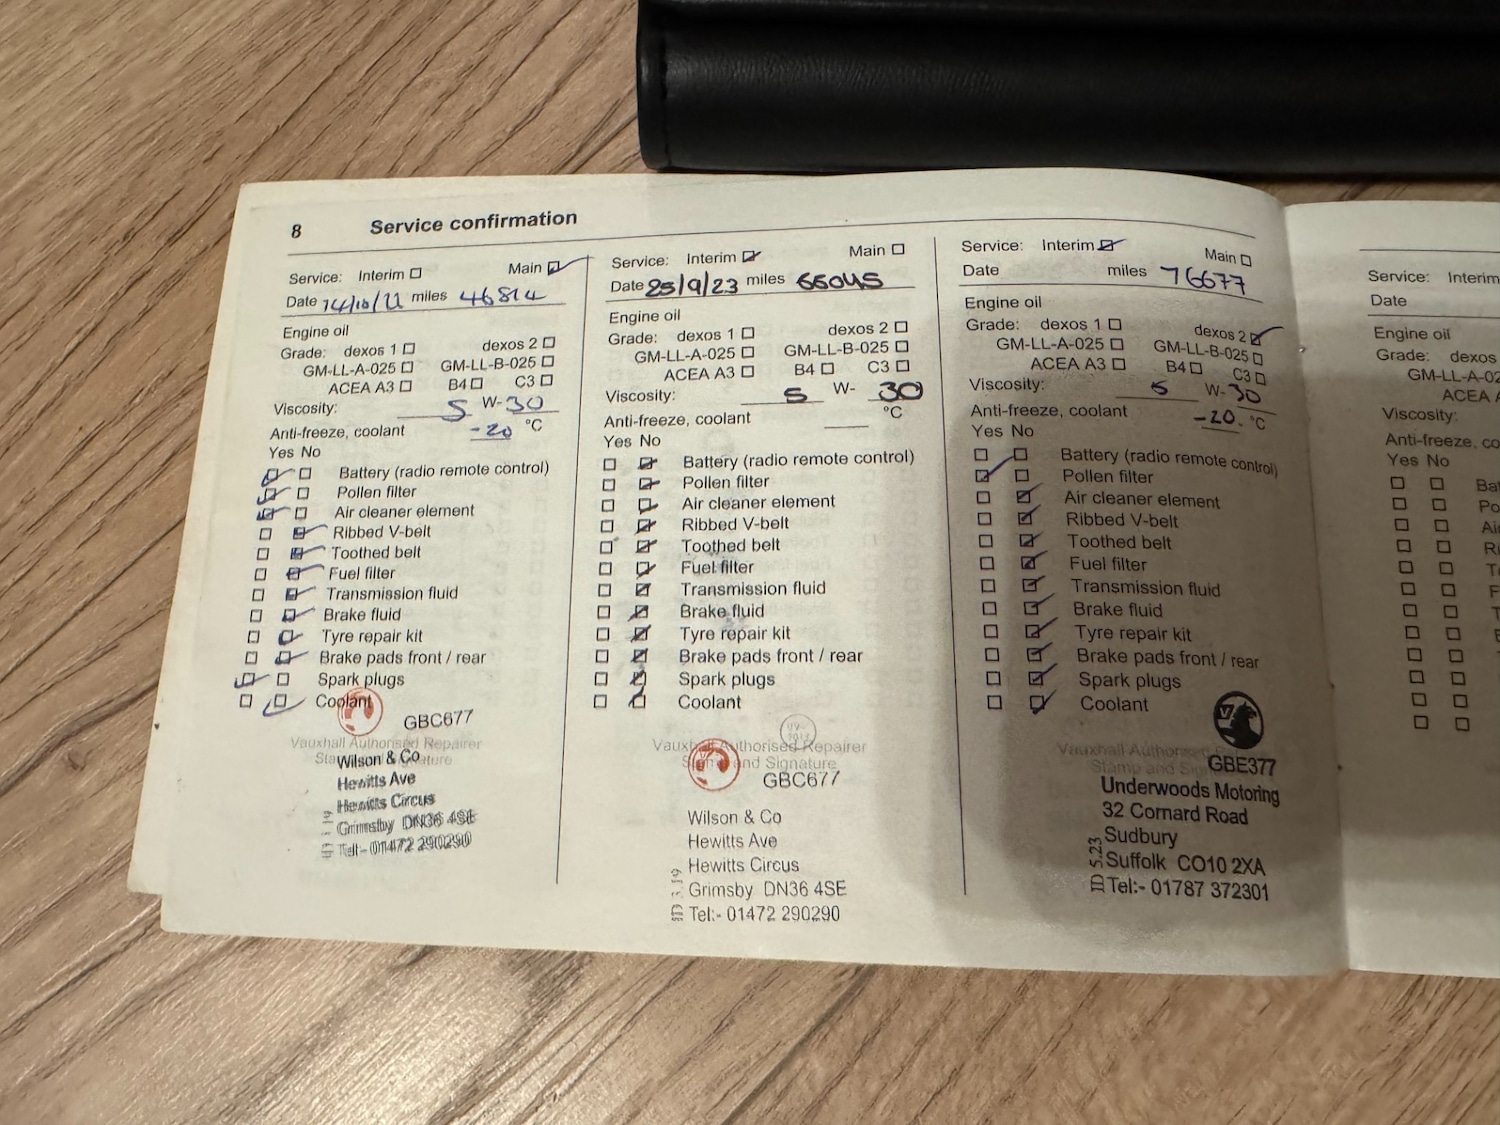 8 Service confirmation
Service: Interim Main
Date 14/10/22 miles 46814
Engine oil
Grade: dexos 1 dexos 2
GM-LL-A-025 GM-LL-B-025
ACEA A3 B4 C3
Viscosity: 5 W-30
Anti-freeze, coolant -20 °C
Yes No
Battery (radio remote control)
Pollen filter
Air cleaner element
Ribbed V-belt
Toothed belt
Fuel filter
Transmission fluid
Brake fluid
Tyre repair kit
Brake pads front / rear
Spark plugs
Coolant
GBC677
Vauxhall Authorised Repairer
Stamp and Signature
Wilson & Co
Hewitts Ave
Hewitts Circus
Grimsby DN36 4SE
Tel:- 01472 290290
Service: Interim Main
Date 25/9/23 miles 66045
Engine oil
Grade: dexos 1 dexos 2
GM-LL-A-025 GM-LL-B-025
ACEA A3 B4 C3
Viscosity: 5 W- 30
Anti-freeze, coolant °C
Yes No
Battery (radio remote control)
Pollen filter
Air cleaner element
Ribbed V-belt
Toothed belt
Fuel filter
Transmission fluid
Brake fluid
Tyre repair kit
Brake pads front / rear
Spark plugs
Coolant
Vauxhall Authorised Repairer
Stamp and Signature
GBC677
Wilson & Co
Hewitts Ave
Hewitts Circus
Grimsby DN36 4SE
Tel:- 01472 290290
ID 3.19
Service: Interim Main
Date miles 76677
Engine oil
Grade: dexos 1 dexos 2
GM-LL-A-025 GM-LL-B-025
ACEA A3 B4 C3
Viscosity: 5 W-30
Anti-freeze, coolant -20 °C
Yes No
Battery (radio remote control)
Pollen filter
Air cleaner element
Ribbed V-belt
Toothed belt
Fuel filter
Transmission fluid
Brake fluid
Tyre repair kit
Brake pads front / rear
Spark plugs
Coolant
Vauxhall Authorised
Stamp and
GBE377
Underwoods Motoring
32 Cornard Road
Sudbury
Suffolk CO10 2XA
Tel:- 01787 372301
ID 5.23
Service: Interim
Date
Engine oil
Grade: dexos
ACEA
Viscosity:
Anti-freeze,
Yes No